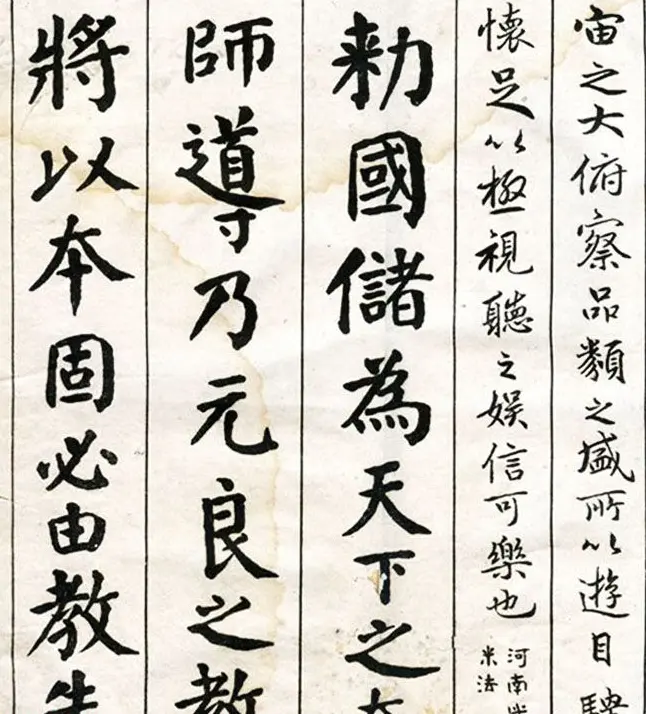 宙之大俯察品類之盛所以遊目騁
懷足以極視聽之娛信可樂也
河南
米法
勑國儲為天下之
師導乃元良之教
將以本固必由教先